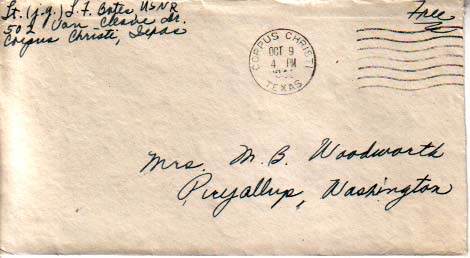 Lt. (j.g.) L. F. Bates, USNR
502 Van Cleave Dr.
Corpus Christi, Texas
Free
CORPUS CHRISTI
OCT 9
4 PM
TEXAS
Mrs. M. B. Woodworth
Puyallup, Washington